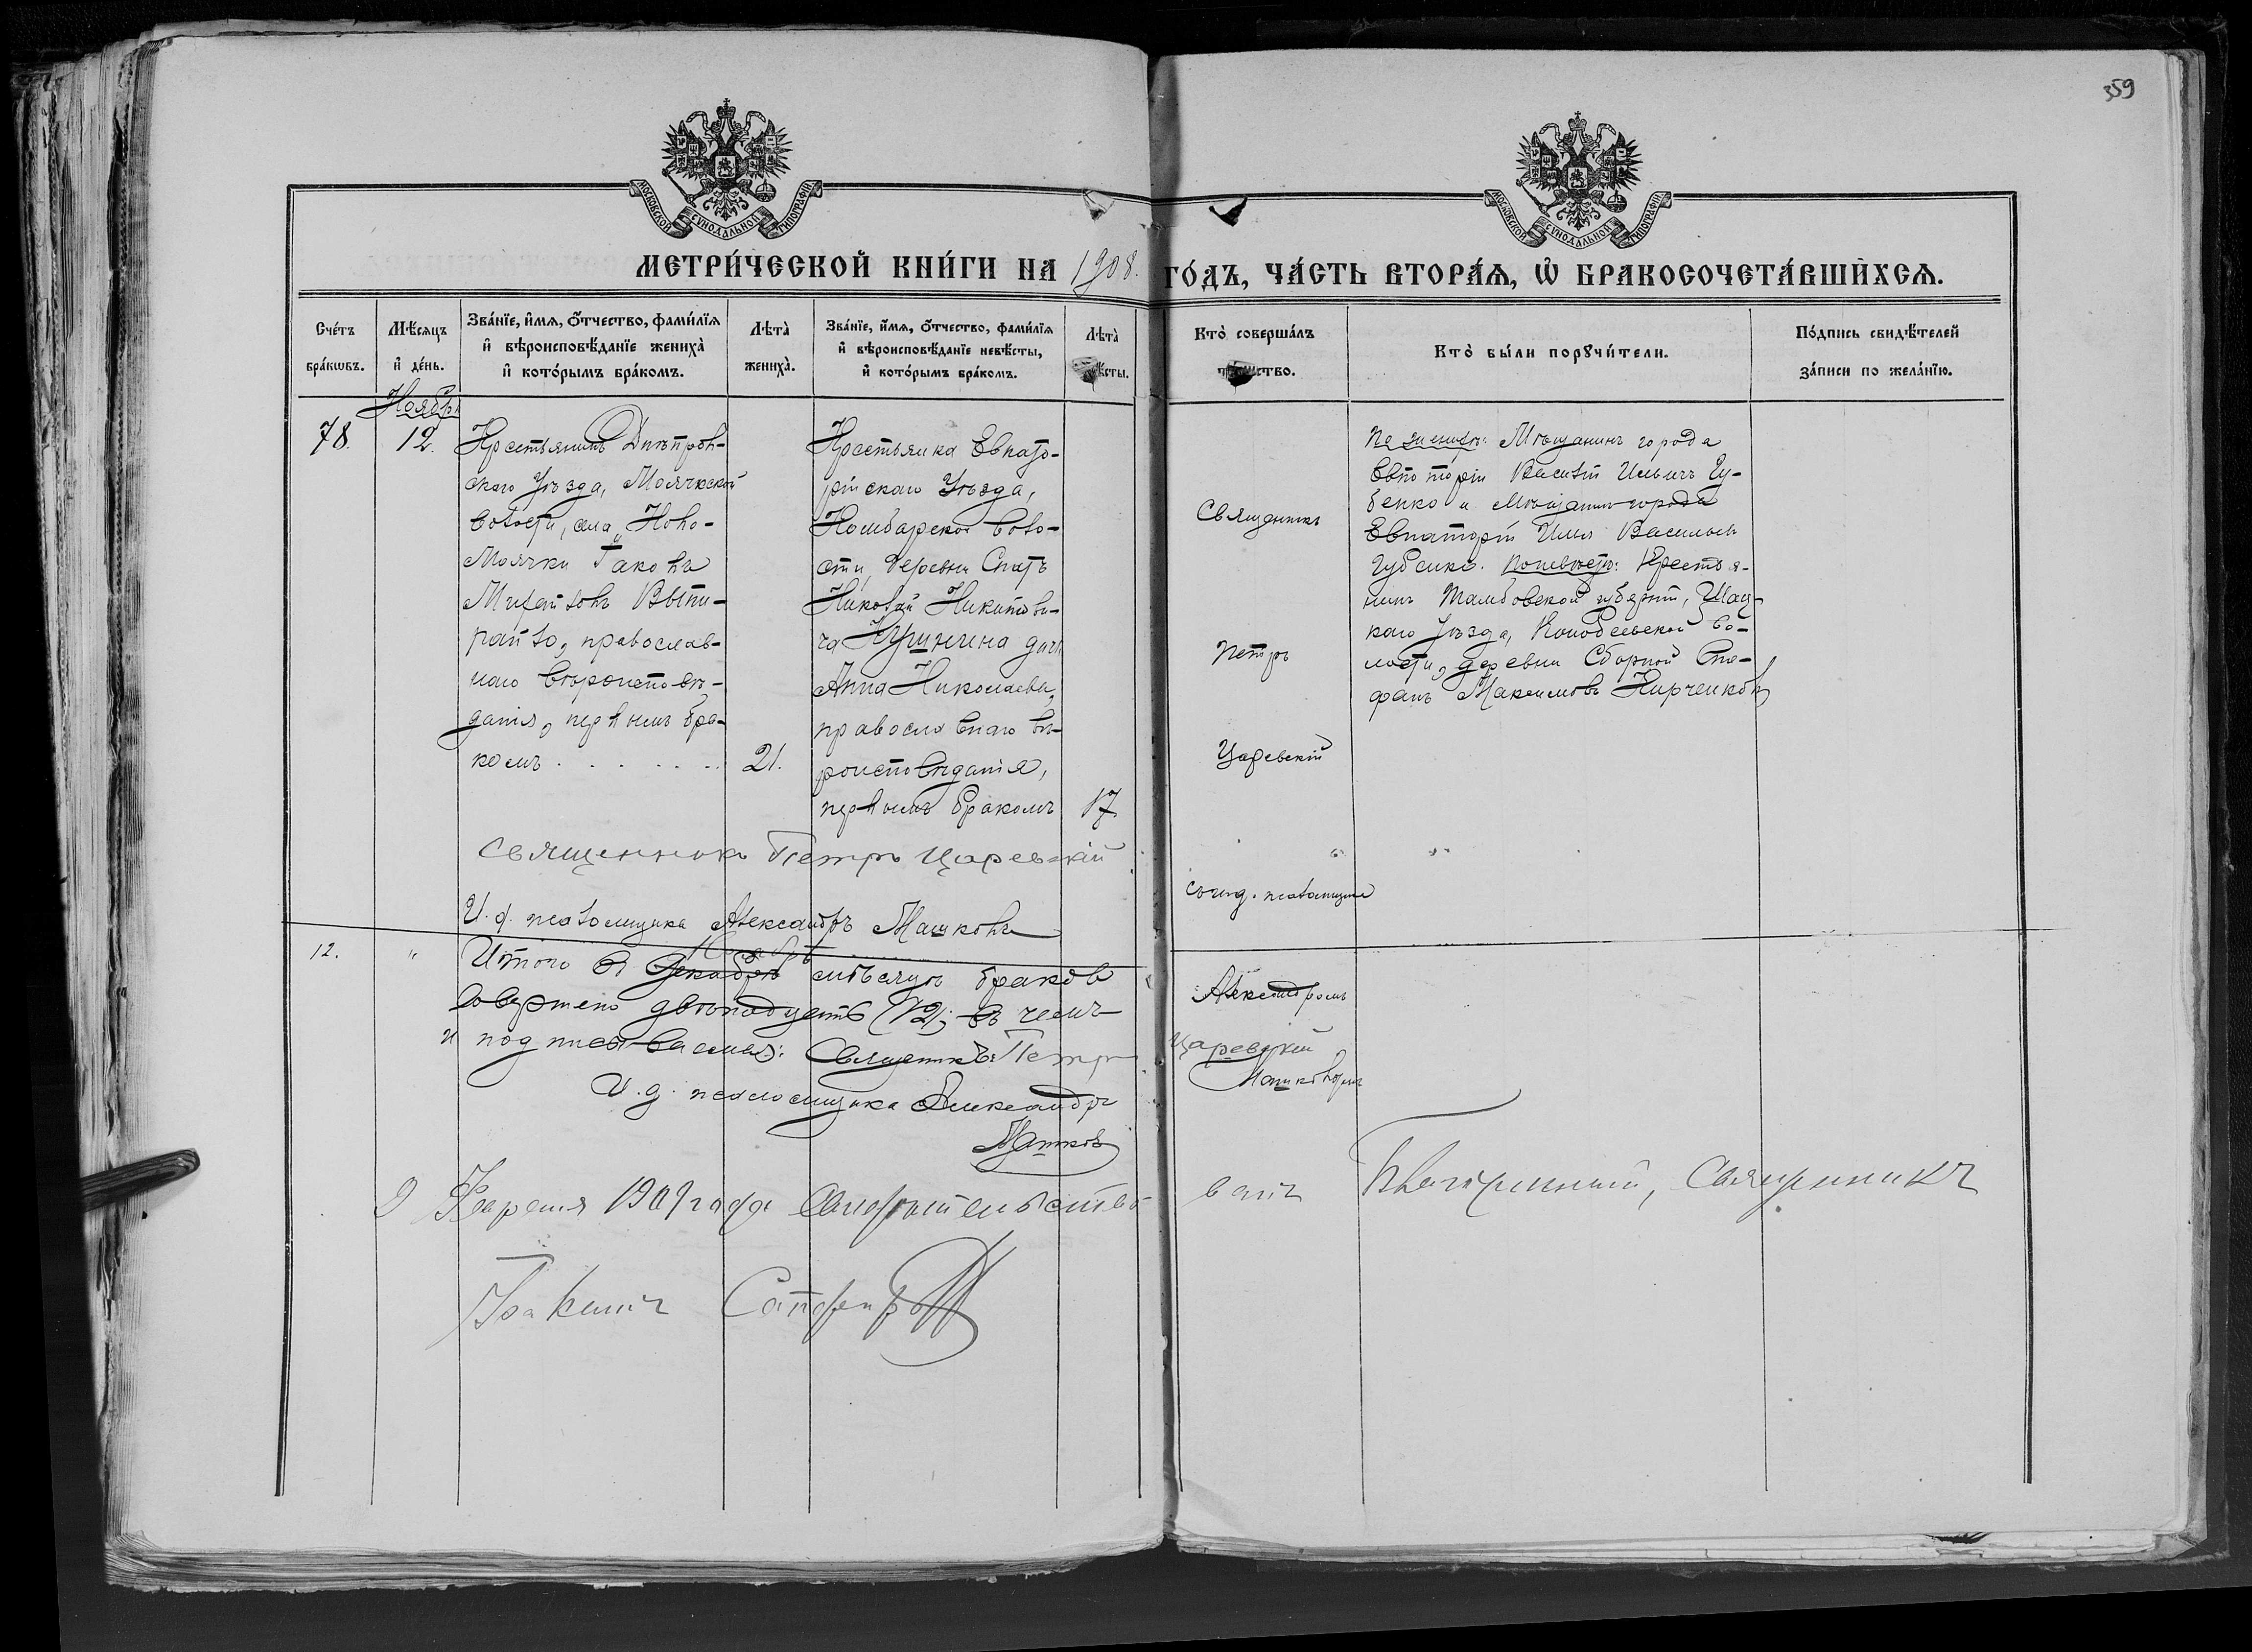 359
МОСКОВСКОЙ СѴНОДАЛЬНОЙ ТИПОГРАФІИ
МОСКОВСКОЙ СѴНОДАЛЬНОЙ ТИПОГРАФІИ
МЕТРИ́ЧЕСКОЙ КНИ́ГИ НА 1908. ГО́ДЪ, ЧА́СТЬ ВТОРА́Ѧ, Ѡ҆ БРАКОСОЧЕТА́ВШИХСѦ.
Сче́тъ
бра́кѡвъ.
Мѣ́сяцъ
и҆ де́нь.
Зва́нїе, и҆́мя, ѻ҆́тчество, фами́лїя
и҆ вѣроисповѣ́данїе жениха̀
и҆ кото́рымъ бра́комъ.
Лѣта̀
жениха̀.
Зва́нїе, и҆́мя, ѻ҆́тчество, фами́лїя
и҆ вѣроисповѣ́данїе невѣ́сты,
и҆ кото́рымъ бра́комъ.
Лѣта̀
невѣ́сты.
Кто̀ соверша́лъ
таинство.
Кто̀ бы́ли порꙋчи́тели.
По́дпись свидѣ́телей
за́писи по жела́нїю.
Ноябрь
78.
12.
Крестьянинъ Днѣпров-
скаго Уѣзда, Маячкской
волости, села Ново-
Маячки Іаковъ
Михайловъ
райло, православ-
наго вѣроисповѣ-
данія, первымъ бра-
комъ . . . . . . .
21.
Крестьянка Евпато-
рійскаго Уѣзда,
Камбарской воло-
сти, деревни Спатъ
Николай Никитови-
ча Куринина дочь
Анна Николаева,
православнаго вѣ-
роисповѣданія,
первымъ бракомъ
17
Священникъ
Петръ
Царевскій
съ и. д. псаломщика
Александромъ
Машковымъ
По женихѣ: Мѣщанинъ города
Евпаторіи Василій Ильичъ Гу-
бенко и Мѣщанинъ города
Евпаторіи Илья Васильевъ
Губенко. По невѣстѣ: Крестья-
нинъ Тамбовской губерніи, Шац-
каго Уѣзда, Конобеевской во-
лости, деревни Сборной Сте-
фанъ Максимовъ Кирченковъ
Священникъ Петръ Царевскій
И. д. псаломщика Александръ Машковъ
12.
"
Итого въ Декабрѣ Ноябрѣ мѣсяцѣ браковъ
совершено двѣнадцать (12), въ чемъ
и подписываемся: Священникъ: Петръ Царевскій
И. д. псаломщика Александръ
Машковъ
9 Февраля 1909 года Свидѣтельствовалъ Благочинный, Священникъ